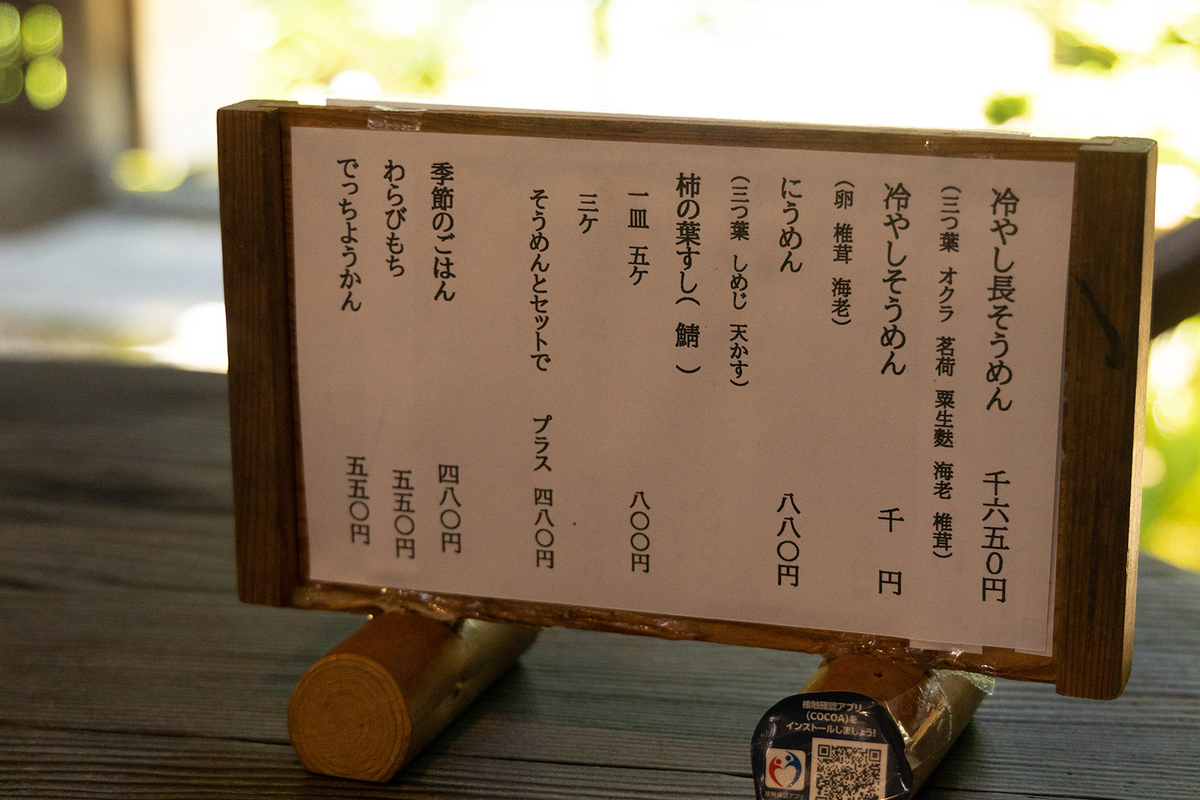 冷やし長そうめん 千六五〇円
（三つ葉 オクラ 茗荷 粟生麩 海老 椎茸）
冷やしそうめん 千 円
（卵 椎茸 海老）
にうめん 八八〇円
（三つ葉 しめじ 天かす）
柿の葉すし（ 鯖 ）
一皿 五ケ 八〇〇円
三ケ
そうめんとセットで プラス 四八〇円
季節のごはん 四八〇円
わらびもち 五五〇円
でっちようかん 五五〇円
接触確認アプリ
（COCOA）を
インストールしましょう！
接触確認アプリ